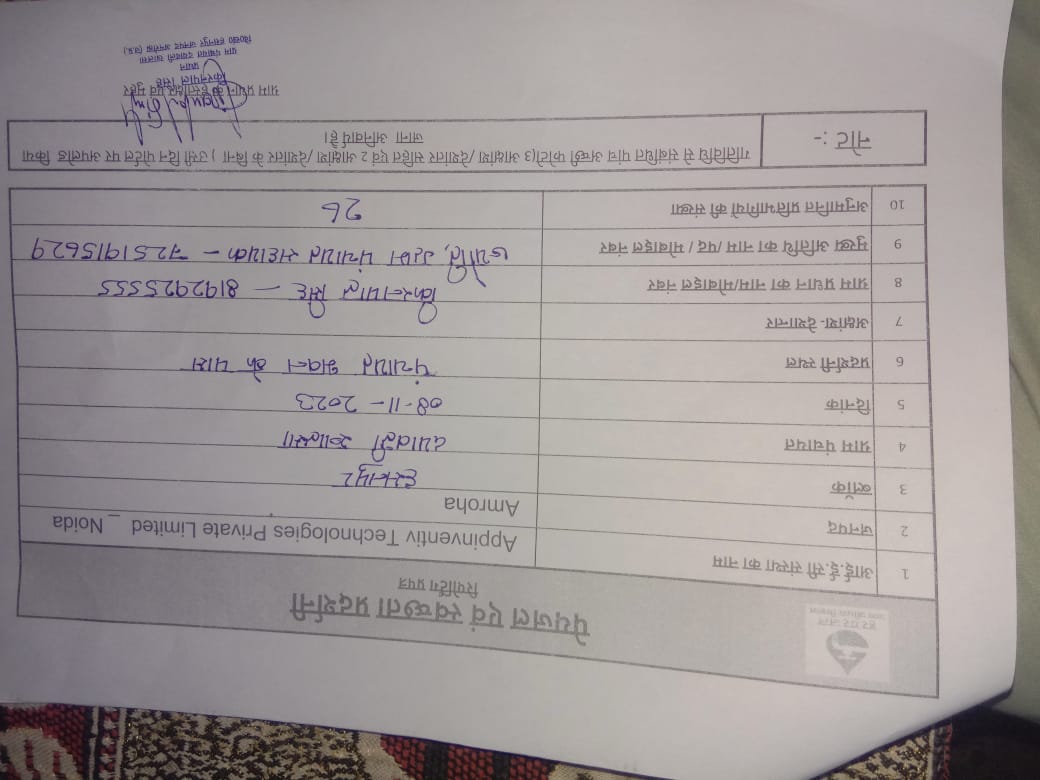 हर घर जल
जल जीवन मिशन
पेयजल एवं स्वच्छता प्रदर्शनी
रिपोर्टिंग प्रपत्र
1 आई.ई.सी संस्था का नाम Appinventiv Technologies Private Limited _ Noida
2 जनपद Amroha
3 ब्लॉक हसनपुर
4 ग्राम पंचायत दयावली खालसा
5 दिनांक 08-11-2023
6 प्रदर्शनी स्थल पंचायत भवन के पास
7 अक्षांश- देशान्तर
8 ग्राम प्रधान का नाम/मोबाइल नंबर किरनपाल सिंह - 8192925555
9 मुख्य अतिथि का नाम /पद / मोबाइल नंबर ज्योति, पंचायत सहायक - 7251915629
10 अनुमानित प्रतिभागियों की संख्या 26
नोट :- गतिविधि से संबंधित पांच अच्छी फोटो(3 अक्षांश /देशांतर सहित एवं 2 अक्षांश /देशांतर के बिना ) उसी दिन पोर्टल पर अपलोड किया
जाना अनिवार्य है।
ग्राम प्रधान के हस्ताक्षर एवं मुहर
किरनपाल सिंह
प्रधान
ग्राम पंचायत दयावली खालसा
वि०ख० हसनपुर जनपद अमरोहा (उ.प्र.)